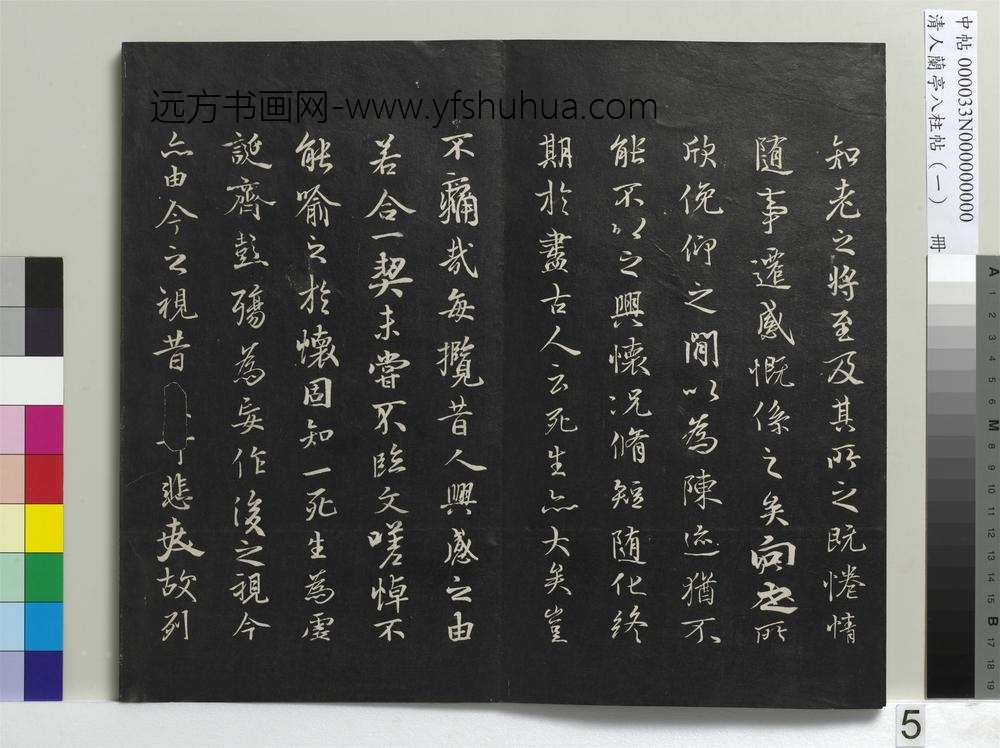 知老之将至及其所之既惓情
随事遷感慨係之矣向之所
欣俛仰之閒以為陳迹猶不
能不以之興懷况脩短随化終
期於盡古人云死生亦大矣豈
不痛哉每攬昔人興感之由
若合一契未嘗不臨文嗟悼不
能喻之於懷固知一死生為虛
誕齊彭殤為妄作後之視今
亦由今之視昔
悲夫故列
远方书画网-www.yfshuhua.com
中帖 000033N000000000
清人蘭亭八柱帖(一) 冊
5
A 1 2 3 4 5 6 M 8 9 10 11 12 13 14 15 B 17 18 19